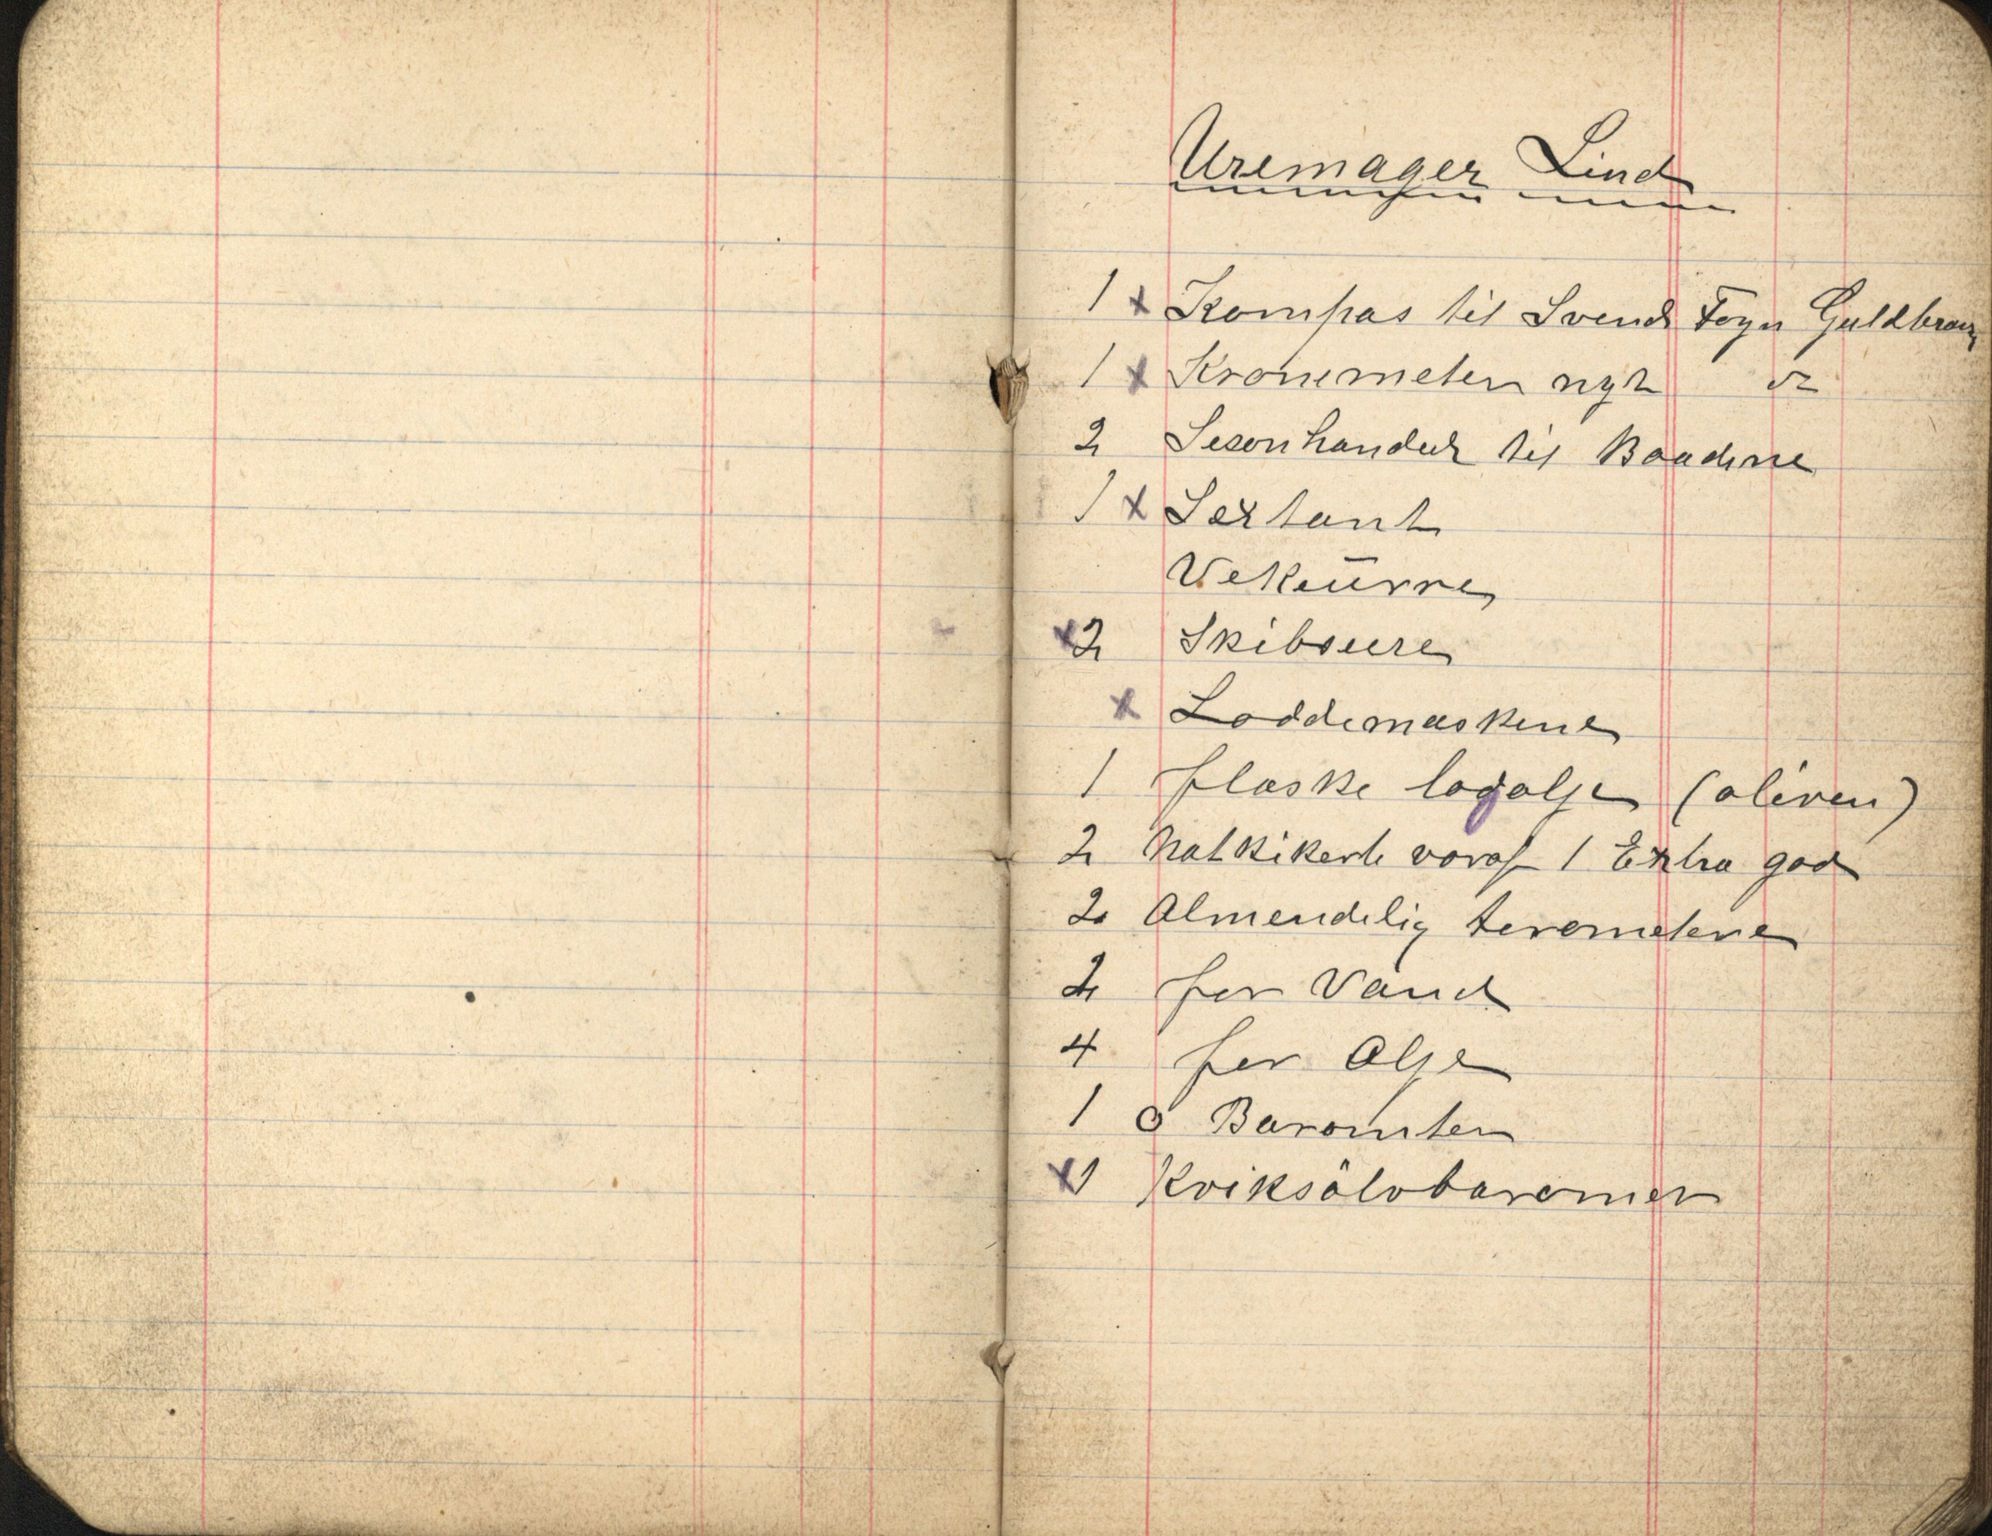 Uremager Lind
1 x Kompas til Svend Foyn Guldbran
1 x Kronemeter nyt do
2 Sesonhanduk til Baadene
1 x Sextant
Vekeūrre
x 2 Skibsure
x Loddemaskine
1 flaske logolje (oliven)
2 Natkikerte voraf 1 Extra god
2 Almendelig terometere
2 for Vand
4 for Olje
1 o Baromter
x 1 Kviksölvbaromer